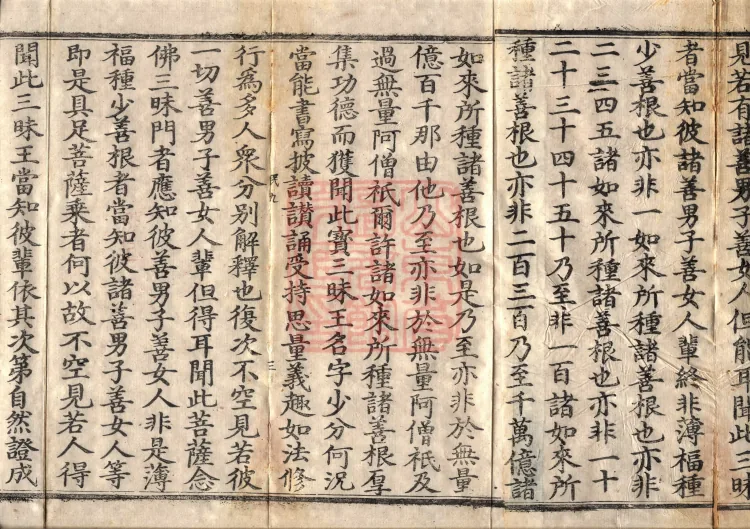 見若有諸善男子善女人但能耳聞此三昧
者當知彼諸善男子善女人輩終非薄福種
少善根也亦非一如來所種諸善根也亦非
二三四五諸如來所種諸善根也亦非一十
二十三十四十五十乃至非一百諸如來所
種諸善根也亦非二百三百乃至千萬億諸
如來所種諸善根也如是乃至亦非於無量
億百千那由他乃至亦非於無量阿僧祇及
過無量阿僧祇爾許諸如來所種諸善根羣
集功德而獲聞此寶三昧王名字少分何況
當能書寫披讀讃誦受持思量義趣如法修
民九 三
行為多人衆分別解釋也復次不空見若彼
一切善男子善女人輩但得耳聞此菩薩念
佛三昧門者應知彼善男子善女人非是薄
福種少善根者當知彼諸善男子善女人等
即是具足菩薩乘者何以故不空見若人得
聞此三昧王當知彼輩依其次第自然證成